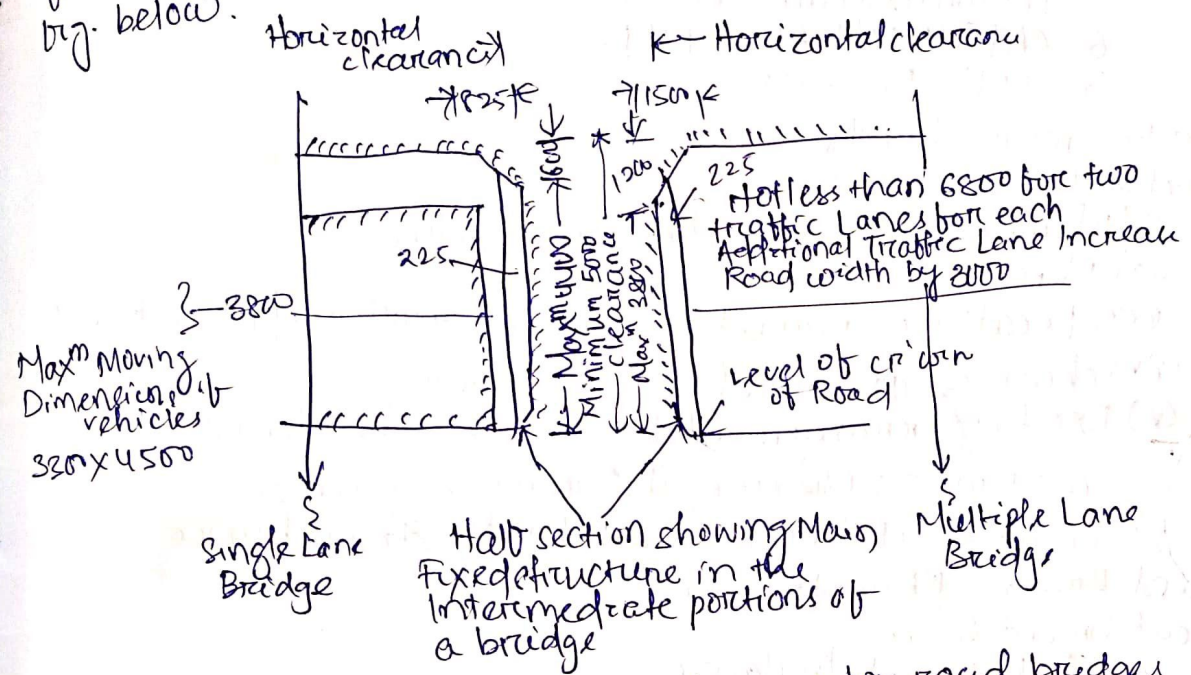 fig. below.
Horizontal
clearance
Horizontal clearance
825
1500
600
1200
225
Not less than 6800 for two
traffic Lanes for each
Additional Traffic Lane Increase
Road width by 3000
225
3800
Maxᵐ 4400
Minimum 5000
clearance
Maxᵐ 3800
Maxᵐ Moving
Dimension of
vehicles
3300 x 4500
Level of crown
of Road
Single Lane
Bridge
Half section showing Main
Fixed structure in the
Intermediate portions of
a bridge
Multiple Lane
Bridge
road bridges